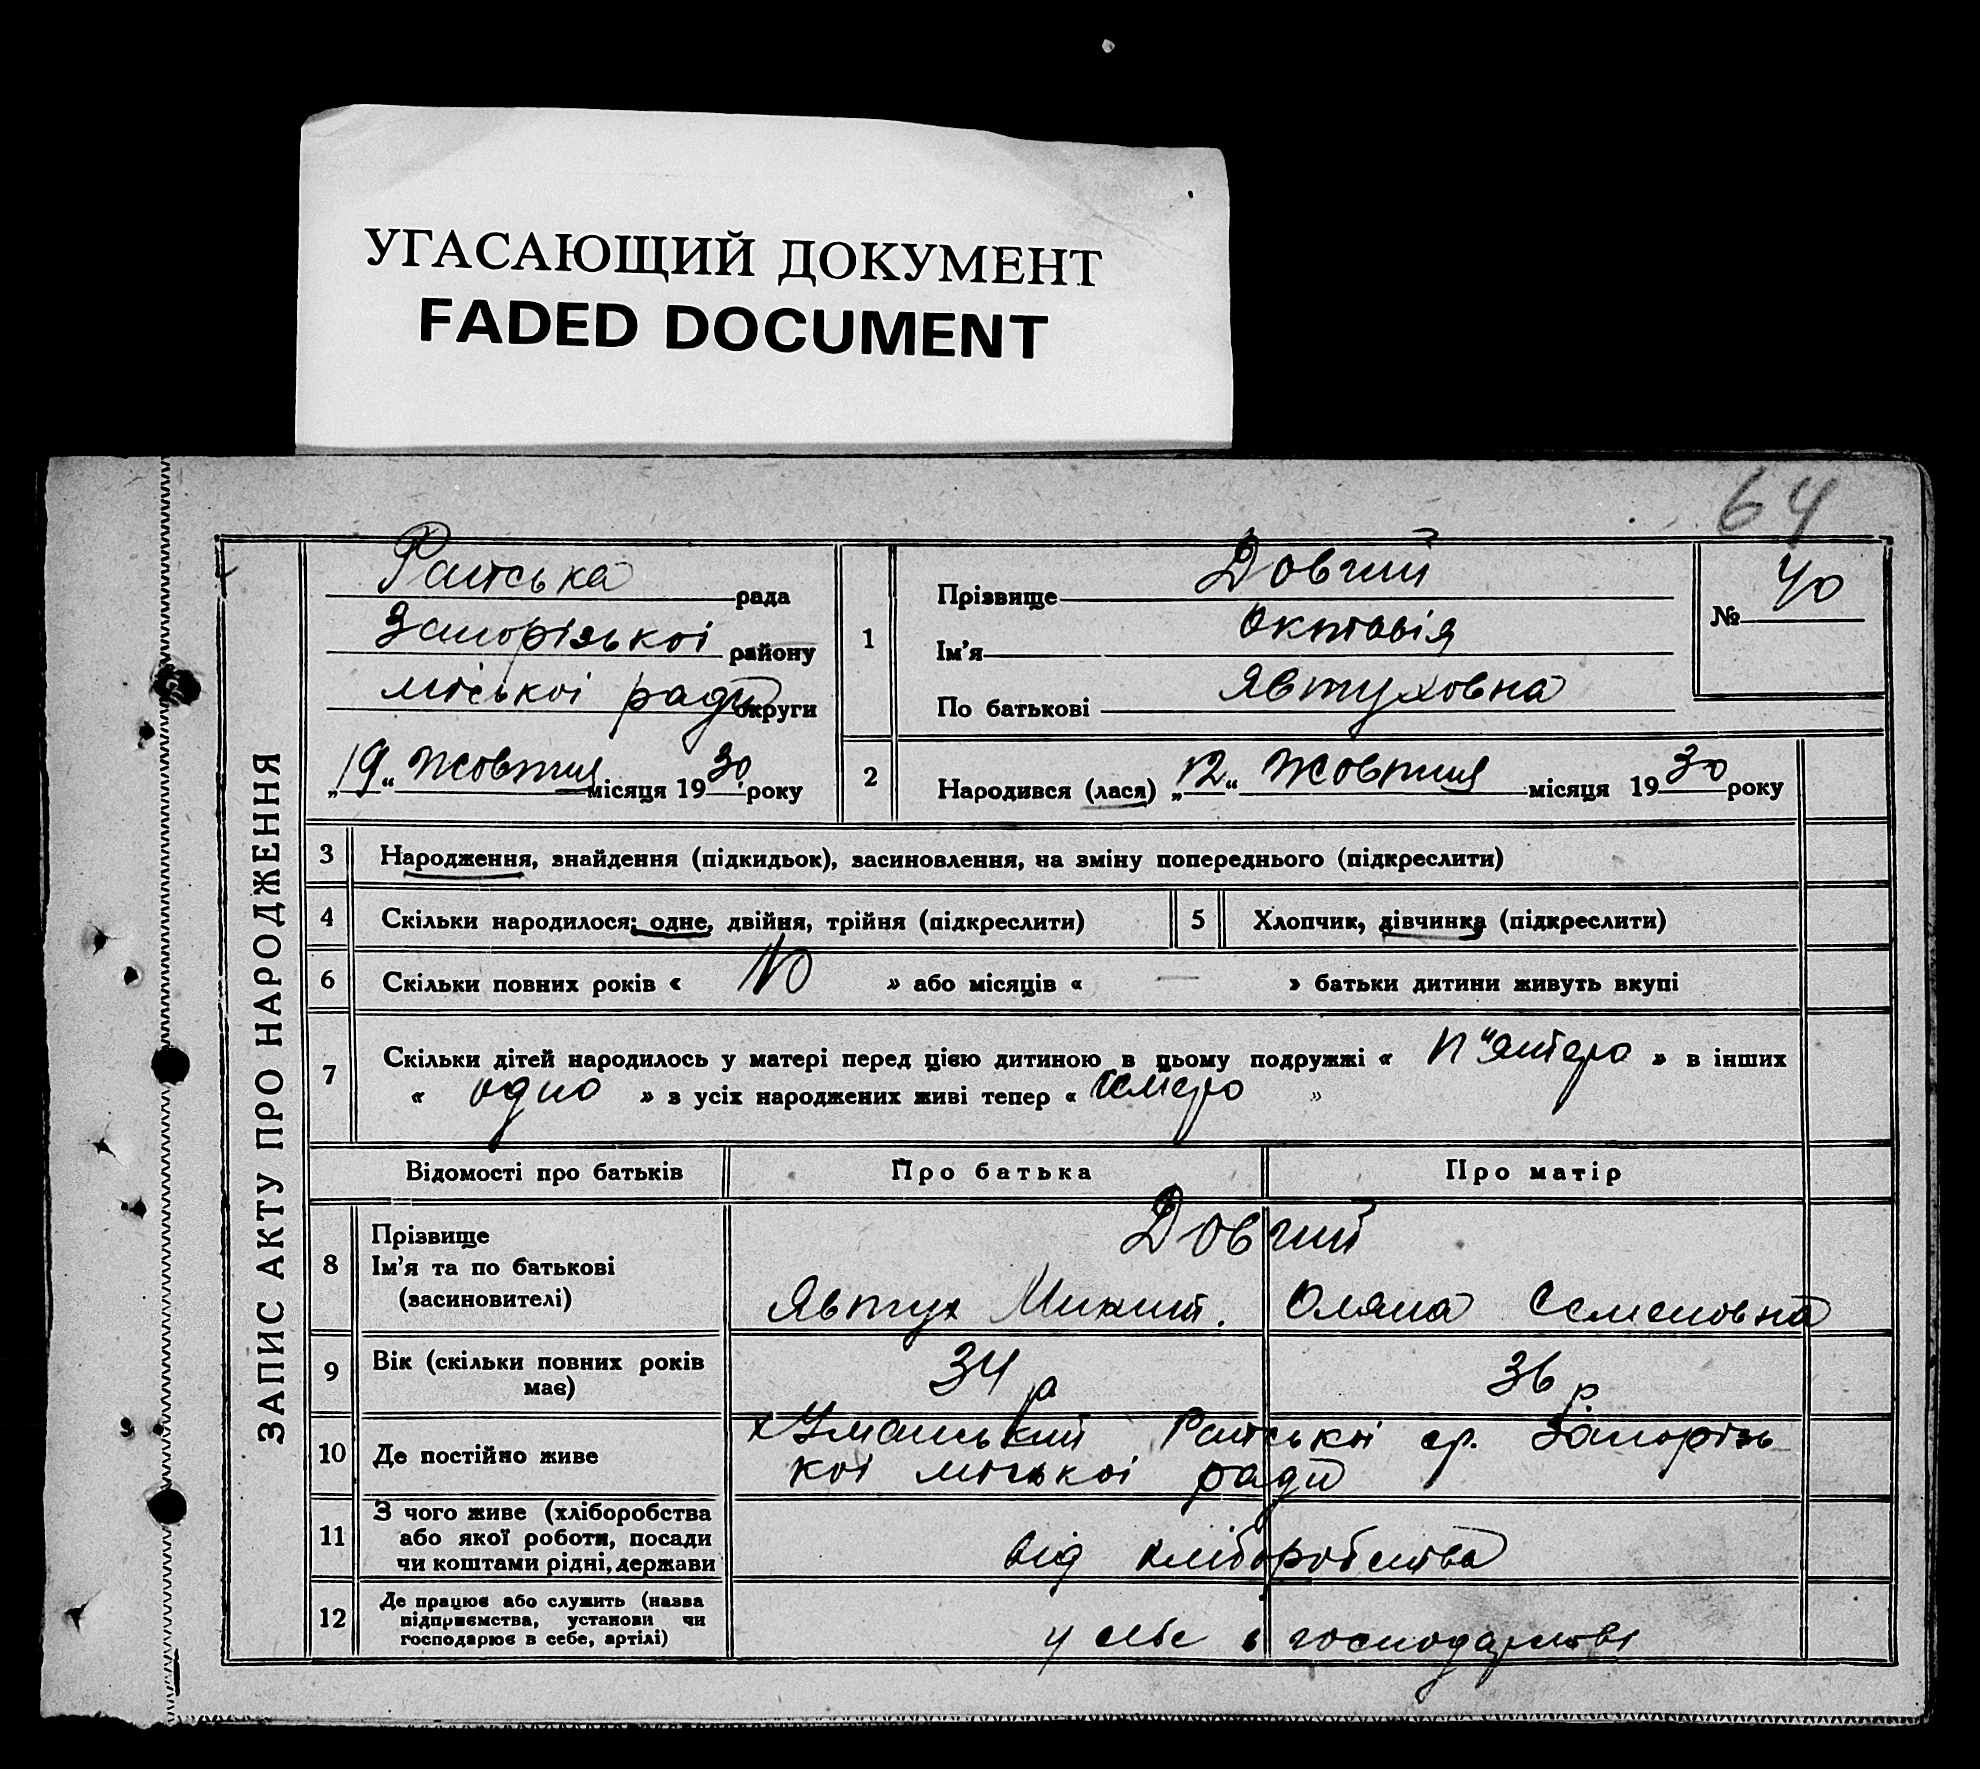 УГАСАЮЩИЙ ДОКУМЕНТ
FADED DOCUMENT
64
ЗАПИС АКТУ ПРО НАРОДЖЕННЯ
Раптська рада
Запорізької району
міської ради округи
„19“ Жовтня місяця 1930 року
1
Прізвище Довгий
Ім'я Октавія
По батькові Явтуховна
№ 40
2 Народився (лася) „12“ Жовтня місяця 1930 року
3 Народження, знайдення (підкидьок), засиновлення, на зміну попереднього (підкреслити)
4 Скільки народилося: одне, двійня, трійня (підкреслити) 5 Хлопчик, дівчинка (підкреслити)
6 Скільки повних років « 10 » або місяців « — » батьки дитини живуть вкупі
7 Скільки дітей народилось у матері перед цією дитиною в цьому подружжі « п"ятеро » в інших
« одно » з усіх народжених живі тепер « »
Відомості про батьків Про батька Про матір
8 Прізвище
Ім'я та по батькові
(засиновителі)
Довгий
Явтух Микит. Оляна Семеновна
9 Вік (скільки повних років
має)
34 р 36 р
10 Де постійно живе
х Уманський ср. Запорізь
кої міської ради
11 З чого живе (хліборобства
або якої роботи, посади
чи коштами рідні, держави
від хліборобства
12 Де працює або служить (назва
підприємства, установи чи
господарює в себе, артілі)
у себе в господарстві